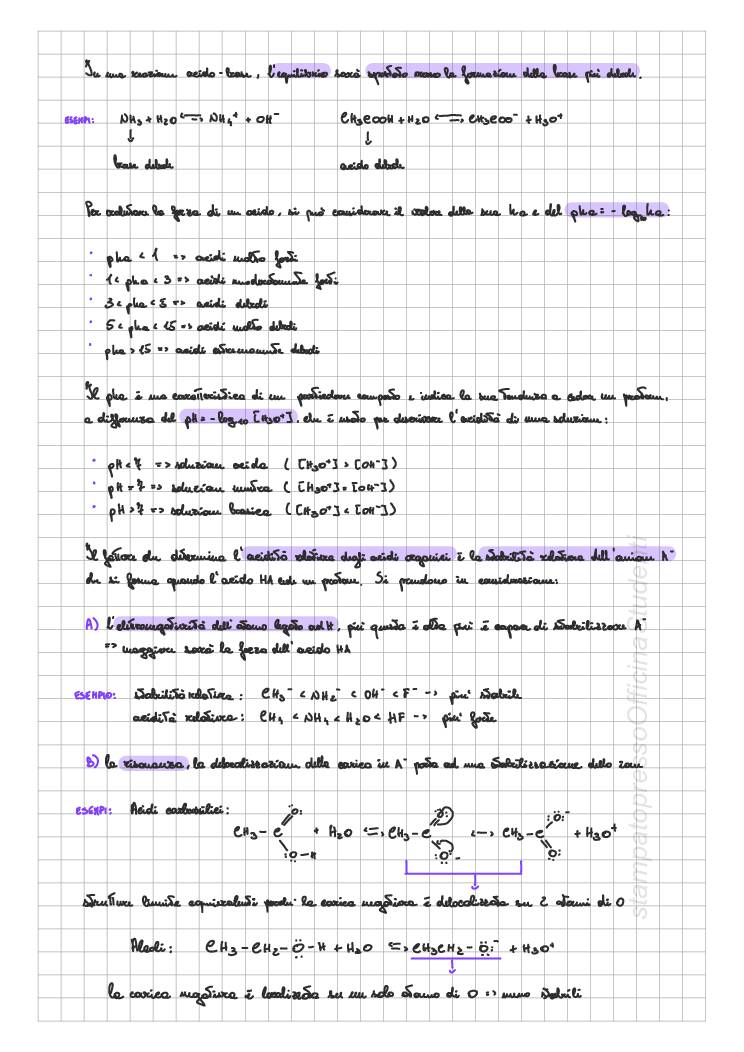 In una reazione acido-base, l'equilibrio sarà spostato verso la formazione della base più debole.
ESEMPI: NH₃ + H₂O ⇌ NH₄⁺ + OH⁻ CH₃COOH + H₂O ⇌ CH₃COO⁻ + H₃O⁺
↓ ↓
base debole acido debole
Per valutare la forza di un acido, si può considerare il valore della sua ka e del pka = - log₁₀ka:
• pka < 1 => acidi molto forti
• 1 < pka < 3 => acidi moderatamente forti
• 3 < pka < 5 => acidi deboli
• 5 < pka < 15 => acidi molto deboli
• pka > 15 => acidi estremamente deboli
Il pka è una caratteristica di un particolare composto e indica la sua tendenza a cedere un protone,
a differenza del pH = - log₁₀ [H₃O⁺], che è usato per descrivere l'acidità di una soluzione:
• pH < 7 => soluzione acida ( [H₃O⁺] > [OH⁻] )
• pH = 7 => soluzione neutra ( [H₃O⁺] = [OH⁻] )
• pH > 7 => soluzione basica ( [H₃O⁺] < [OH⁻] )
Il fattore che determina l'acidità relativa degli acidi organici è la stabilità relativa dell'anione A⁻
che si forma quando l'acido HA cede un protone. Si prendono in considerazione:
A) l'elettronegatività dell'atomo legato ad H, più questa è alta più è capace di stabilizzare A⁻
=> maggiore sarà la forza dell'acido HA
ESEMPIO: stabilità relativa: CH₃⁻ < NH₂⁻ < OH⁻ < F⁻ -> piu' stabile
acidità relativa: CH₄ < NH₄ < H₂O < HF -> piu' forte
B) la risonanza, la delocalizzazione della carica in A⁻ porta ad una stabilizzazione dello ione
ESEMPI: Acidi carbossilici:
CH₃ - C O O - H + H₂O ⇌ CH₃ - C O O⁻ <-> CH₃ - C O⁻ O + H₃O⁺
strutture limite equivalenti perché la carica negativa è delocalizzata su 2 atomi di O
Alcoli: CH₃ - CH₂ - O - H + H₂O ⇌ CH₃CH₂ - O⁻ + H₃O⁺
la carica negativa è localizzata su un solo atomo di O => meno stabili
stampatopressoOfficinaStudenti